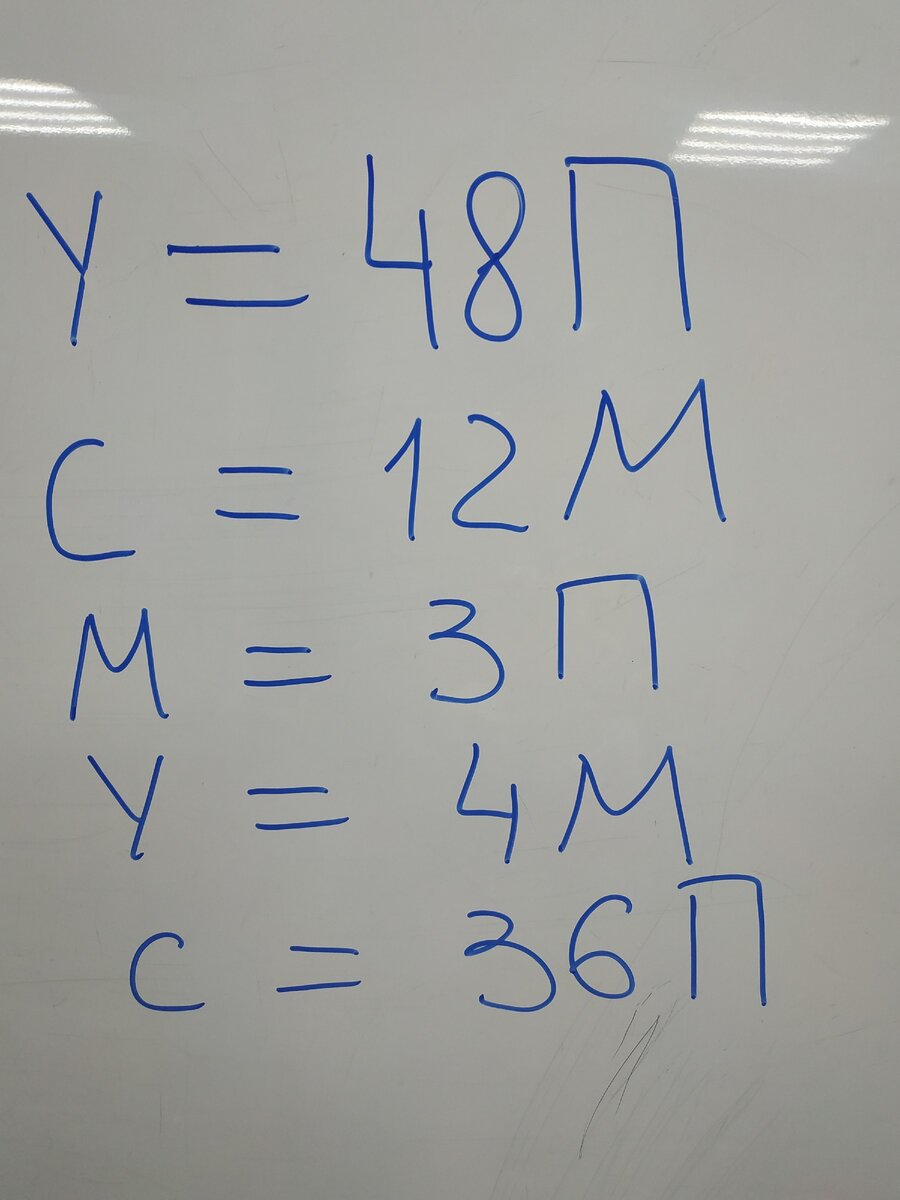 У = 48П
С = 12М
М = 3П
У = 4М
С = 36П